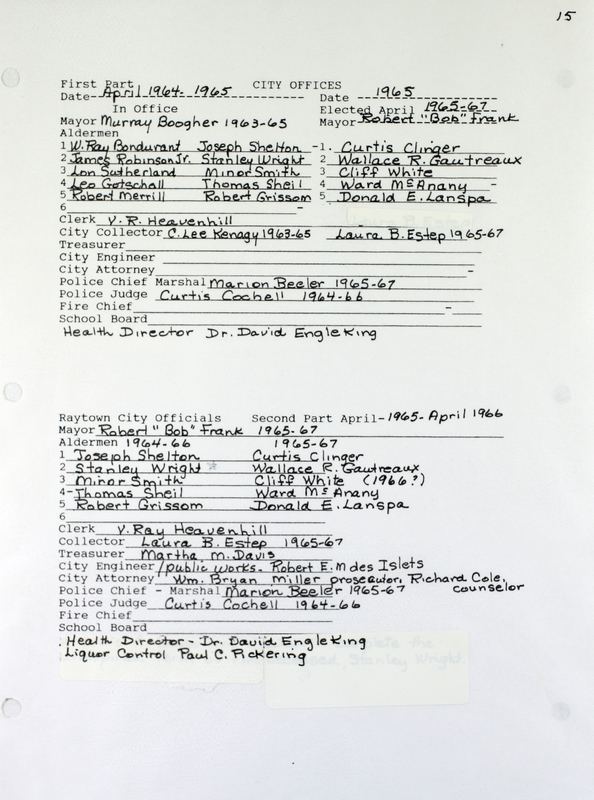 15
First Part CITY OFFICES
Date April 1964-1965 Date 1965
In Office Elected April 1965-67
Mayor Murray Boogher 1963-65 Mayor Robert "Bob" Frank
Aldermen
1 W. Ray Bondurant Joseph Shelton -1. Curtis Clinger
2 James Robinson Jr. Stanley Wright 2 Wallace R. Gautreaux
3 Lon Sutherland Minor Smith 3 Cliff White
4 Leo Gotschall Thomas Sheil 4 Ward McAnany -
5 Robert Merrill Robert Grissom 5 Donald E. Lanspa
6 -
Clerk V. R. Heavenhill
City Collector C. Lee Kenagy 1963-65 Laura B. Estep 1965-67
Treasurer
City Engineer
City Attorney -
Police Chief Marshal Marion Beeler 1965-67
Police Judge Curtis Cochell 1964-66
Fire Chief -
School Board
Health Director Dr. David Engleking
Raytown City Officials Second Part April-1965-April 1966
Mayor Robert "Bob" Frank 1965-67
Aldermen 1964-66 1965-67
1 Joseph Shelton Curtis Clinger
2 Stanley Wright * Wallace R. Gautreaux
3 Minor Smith Cliff White (1966?)
4-Thomas Sheil Ward McAnany
5 Robert Grissom Donald E. Lanspa
6
Clerk V. Ray Heavenhill
Collector Laura B. Estep 1965-67
Treasurer Martha M. Davis
City Engineer/public works- Robert E. M des Islets
City Attorney Wm. Bryan Miller prosecutor, Richard Cole,
Police Chief - Marshal Marion Beeler 1965-67 counselor
Police Judge Curtis Cochell 1964-66
Fire Chief
School Board
Health Director - Dr. David Engleking
Liquor Control Paul C. Pickering